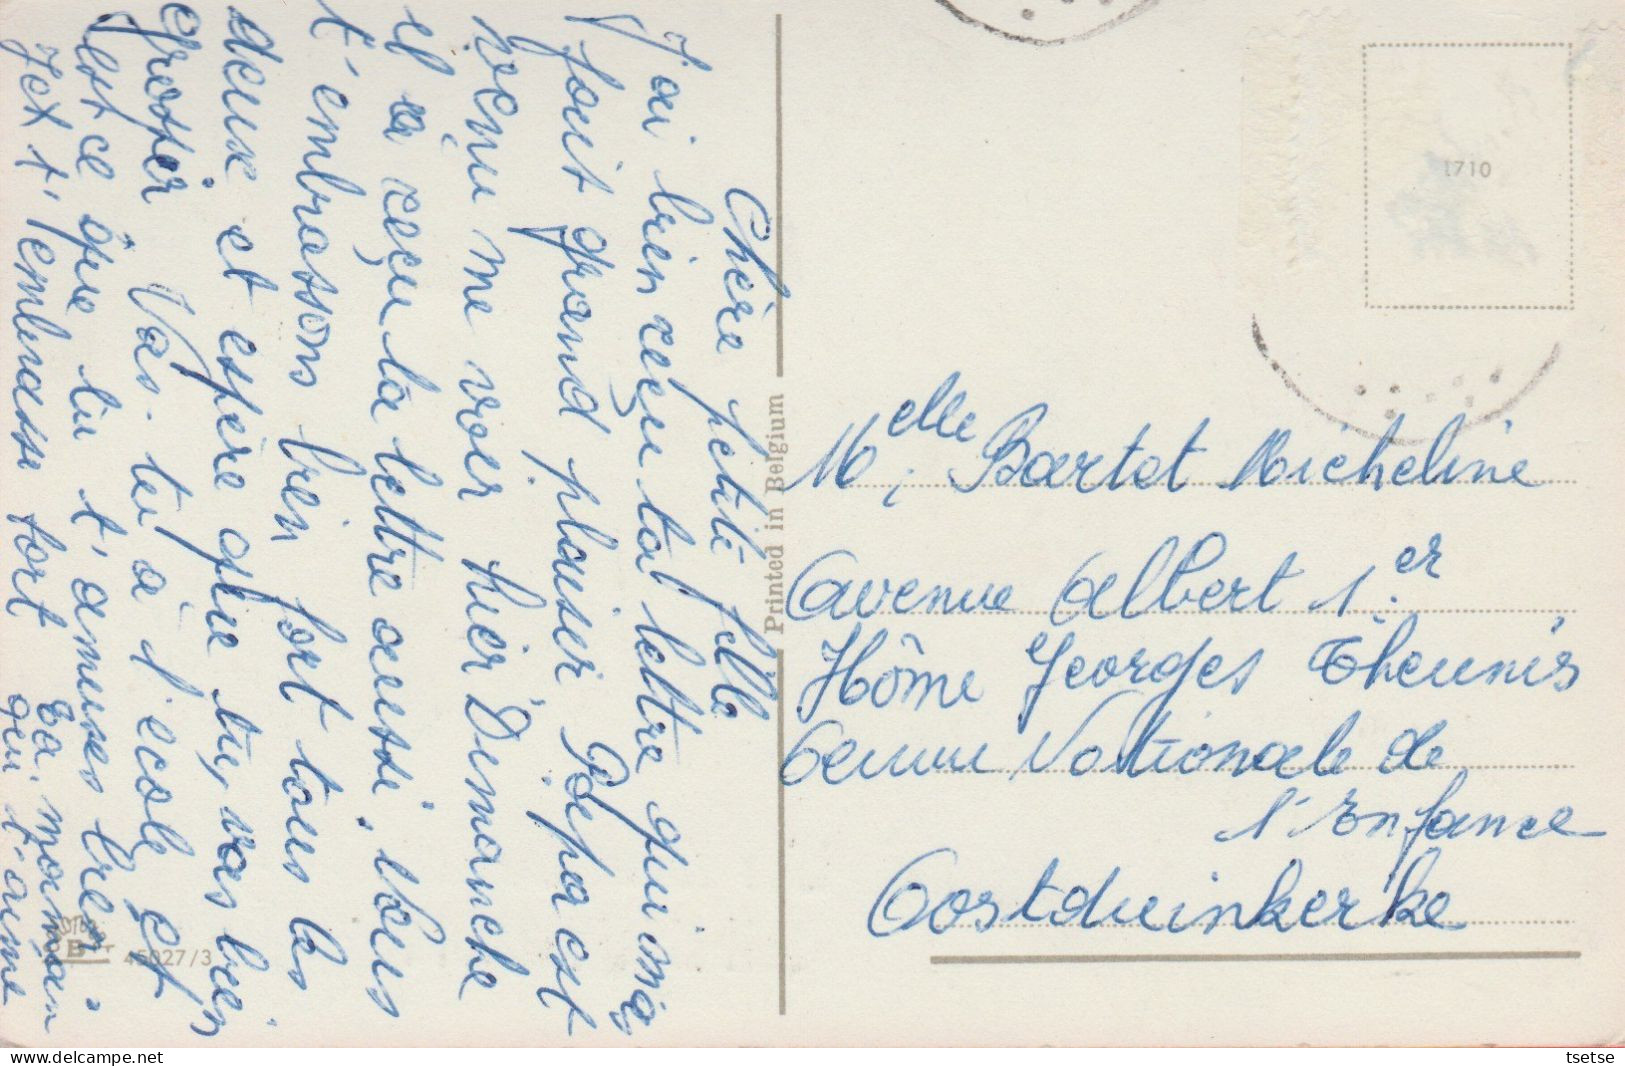 Chère petite fille
J'ai bien reçu ta lettre qui ma
fait grand plaisir Pépa est
venu me voir hier Dimanche
el a reçu ta lettre aussi, Nous
t'embrassons bien fort tous les
deux et espère que tu, vas bien
Vas-tu à l'ecole et
est ce que tu t'amuses bien
Jet t'embrasse fort Ta maman
qui t'aime
B
45027/3
Printed in Belgium
1710
Melle Bartet Micheline
Avenue Albert 1.er
Hôme Georges Theunis
Oeuvre Nationale de
l'Enfance
Oostduinkerke
tsetse
© www.delcampe.net